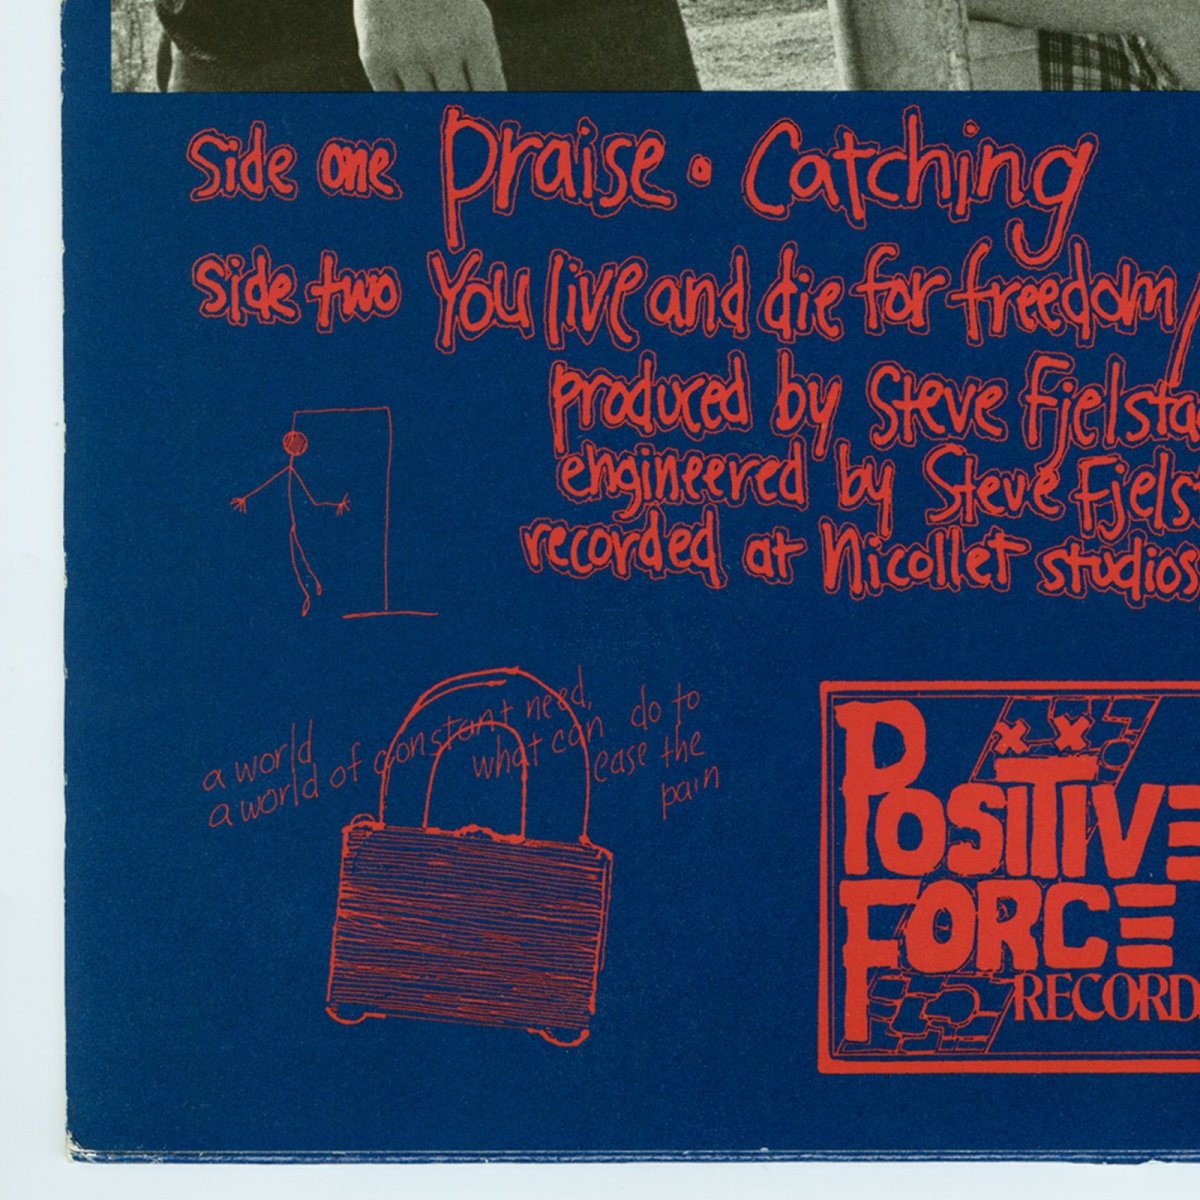 Side one Praise • Catching
Side two You live and die for freedom /
produced by Steve Fjelsta
engineered by Steve Fjelst
recorded at Nicollet studios
a world
a world of constant need,
what can do to
ease the
pain
POSITIVE
FORCE
RECORD